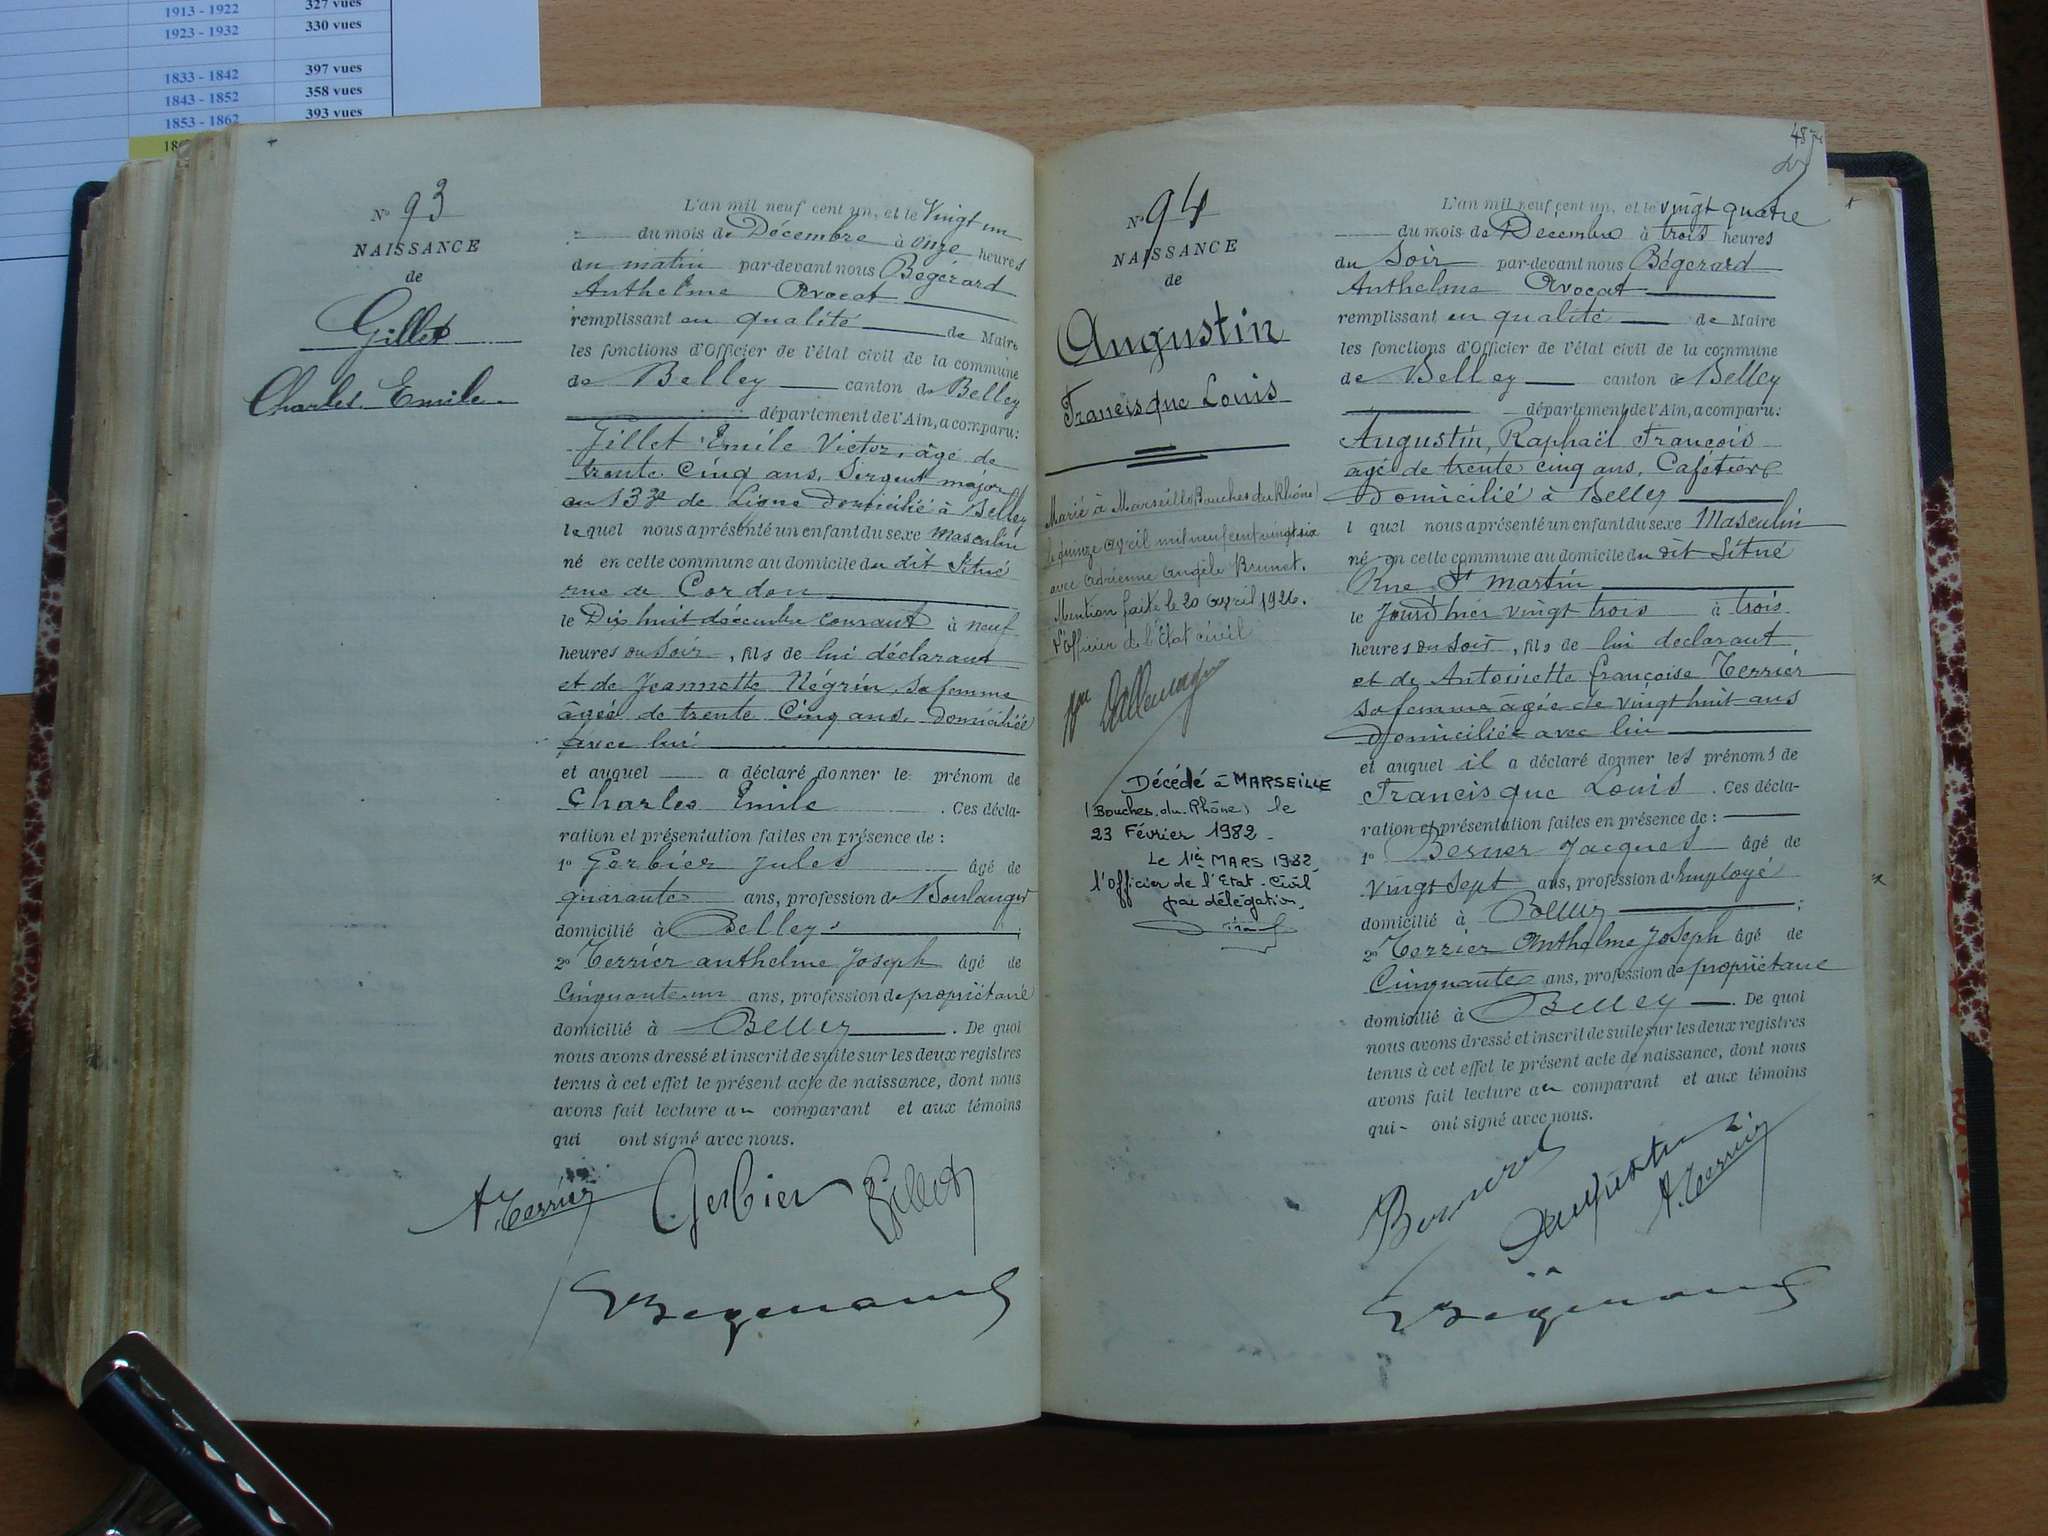 1913 - 1922 327 vues
1923 - 1932 330 vues
1833 - 1842 397 vues
1843 - 1852 358 vues
1853 - 1862 393 vues
N° 93
NAISSANCE
de
Gillet
Charles Emile
L'an mil neuf cent un, et le Vingt un
du mois de Décembre à onze heures
du matin par-devant nous Bégérard
Anthelme Avocat
remplissant en qualité de Maire
les fonctions d'Officier de l'état civil de la commune
de Belley canton de Belley
département de l'Ain, a comparu:
Gillet Emile Victor, âgé de
trente cinq ans, Sergent major
au 133e de Ligne Domicilié à Belley
lequel nous a présenté un enfant du sexe Masculin
né en cette commune au domicile du dit Situé
rue de Cordon
le Dix huit décembre courant à neuf
heures du soir, fils de lui déclarant
et de Jeannette Négrin, sa femme
âgée de trente Cinq ans. Domiciliée
avec lui
et auquel a déclaré donner le prénom de
Charles Emile. Ces décla-
ration et présentation faites en présence de :
1° Gerbier Jules âgé de
quarante ans, profession de Boulanger
domicilié à Belley
2° Terrier anthelme Joseph âgé de
Cinquante un ans, profession de propriétaire
domicilié à Belley. De quoi
nous avons dressé et inscrit de suite sur les deux registres
tenus à cet effet le présent acte de naissance, dont nous
avons fait lecture au comparant et aux témoins
qui ont signé avec nous.
A. Terrier Gerbier Gillet
Bégérard
48
N° 94
NAISSANCE
de
Augustin
Francisque Louis
Marié à Marseille (Bouches du Rhône)
le quinze avril mil neuf cent vingt six
avec Adrienne Angèle Brunet.
Mention faite le 20 avril 1926.
l'Officier de l'Etat civil
Décédé à MARSEILLE
(Bouches.du.Rhône) le
23 Février 1982 -
Le 1er MARS 1982
l'Officier de l'Etat-Civil
par délégation,
L'an mil neuf cent un, et le vingt quatre
du mois de Décembre à trois heures
du Soir par-devant nous Bégérard
Anthelme Avocat
remplissant en qualité de Maire
les fonctions d'Officier de l'état civil de la commune
de Belley canton de Belley
département de l'Ain, a comparu:
Augustin, Raphaël François
âgé de trente cinq ans, Cafetier
Domicilié à Belley
l quel nous a présenté un enfant du sexe Masculin
né en cette commune au domicile du dit Situé
Rue St Martin
le jourd'hier vingt trois à trois
heures du soir, fils de lui déclarant
et de Antoinette françoise Terrier
sa femme âgée de vingt huit ans
Domiciliée avec lui
et auquel il a déclaré donner les prénoms de
Francisque Louis. Ces décla-
ration et présentation faites en présence de :
1° Jacques âgé de
vingt sept ans, profession d'Employé
domicilié à Belley ;
2° Terrier Anthelme Joseph âgé de
Cinquante ans, profession de propriétaire
domicilié à Belley. De quoi
nous avons dressé et inscrit de suite sur les deux registres
tenus à cet effet le présent acte de naissance, dont nous
avons fait lecture au comparant et aux témoins
qui ont signé avec nous.
Augustin A. Terrier
Bégérard